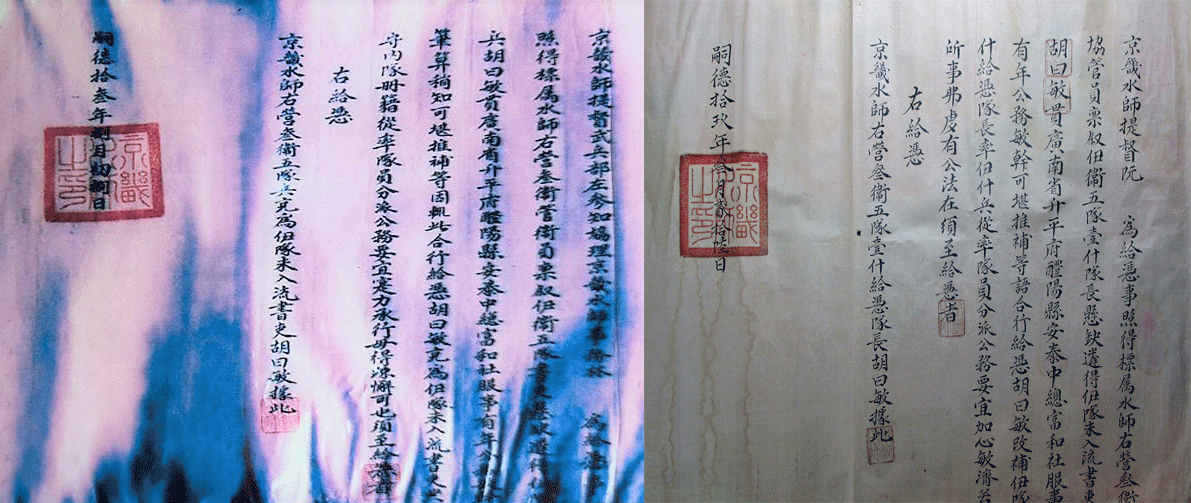 京畿水師提督武兵部左參知協理京畿水師事務林　為給憑事
照得標属水師右營叁衛管衛員稟叙伊衛五隊書吏懸缺遴得伊
兵胡曰敏貫廣南省升平府醴陽縣安泰中總富和社服事有年公務
筆算稍知可堪推補等因輒此合行給憑胡曰敏充為伊隊未入流書吏
守内隊冊籍從率隊員分派公務要宜寔力承行毋得疎懈可也須至給憑者
右給憑
京畿水師右營叁衛五隊兵充為伊隊未入流書吏胡曰敏據此
嗣德拾叁年捌月初捌日
京畿
之印
京畿水師提督阮　為給憑事照得標属水師右營叁衛
協管員稟叙伊衛五隊壹什隊長懸缺遴得伊隊未入流書吏
胡曰敏貫廣南省升平府醴陽縣安泰中總富和社服事
有年公務敏幹可堪推補等語合行給憑胡曰敏改補伊隊
什給憑隊長率伊什兵從率隊員分派公務要宜加心敏濟若
所事弗虔有公法在須至給憑者
右給憑
京畿水師右營叁衛五隊壹什給憑隊長胡曰敏據此
嗣德拾玖年叁月貳拾陸日
京畿
之印